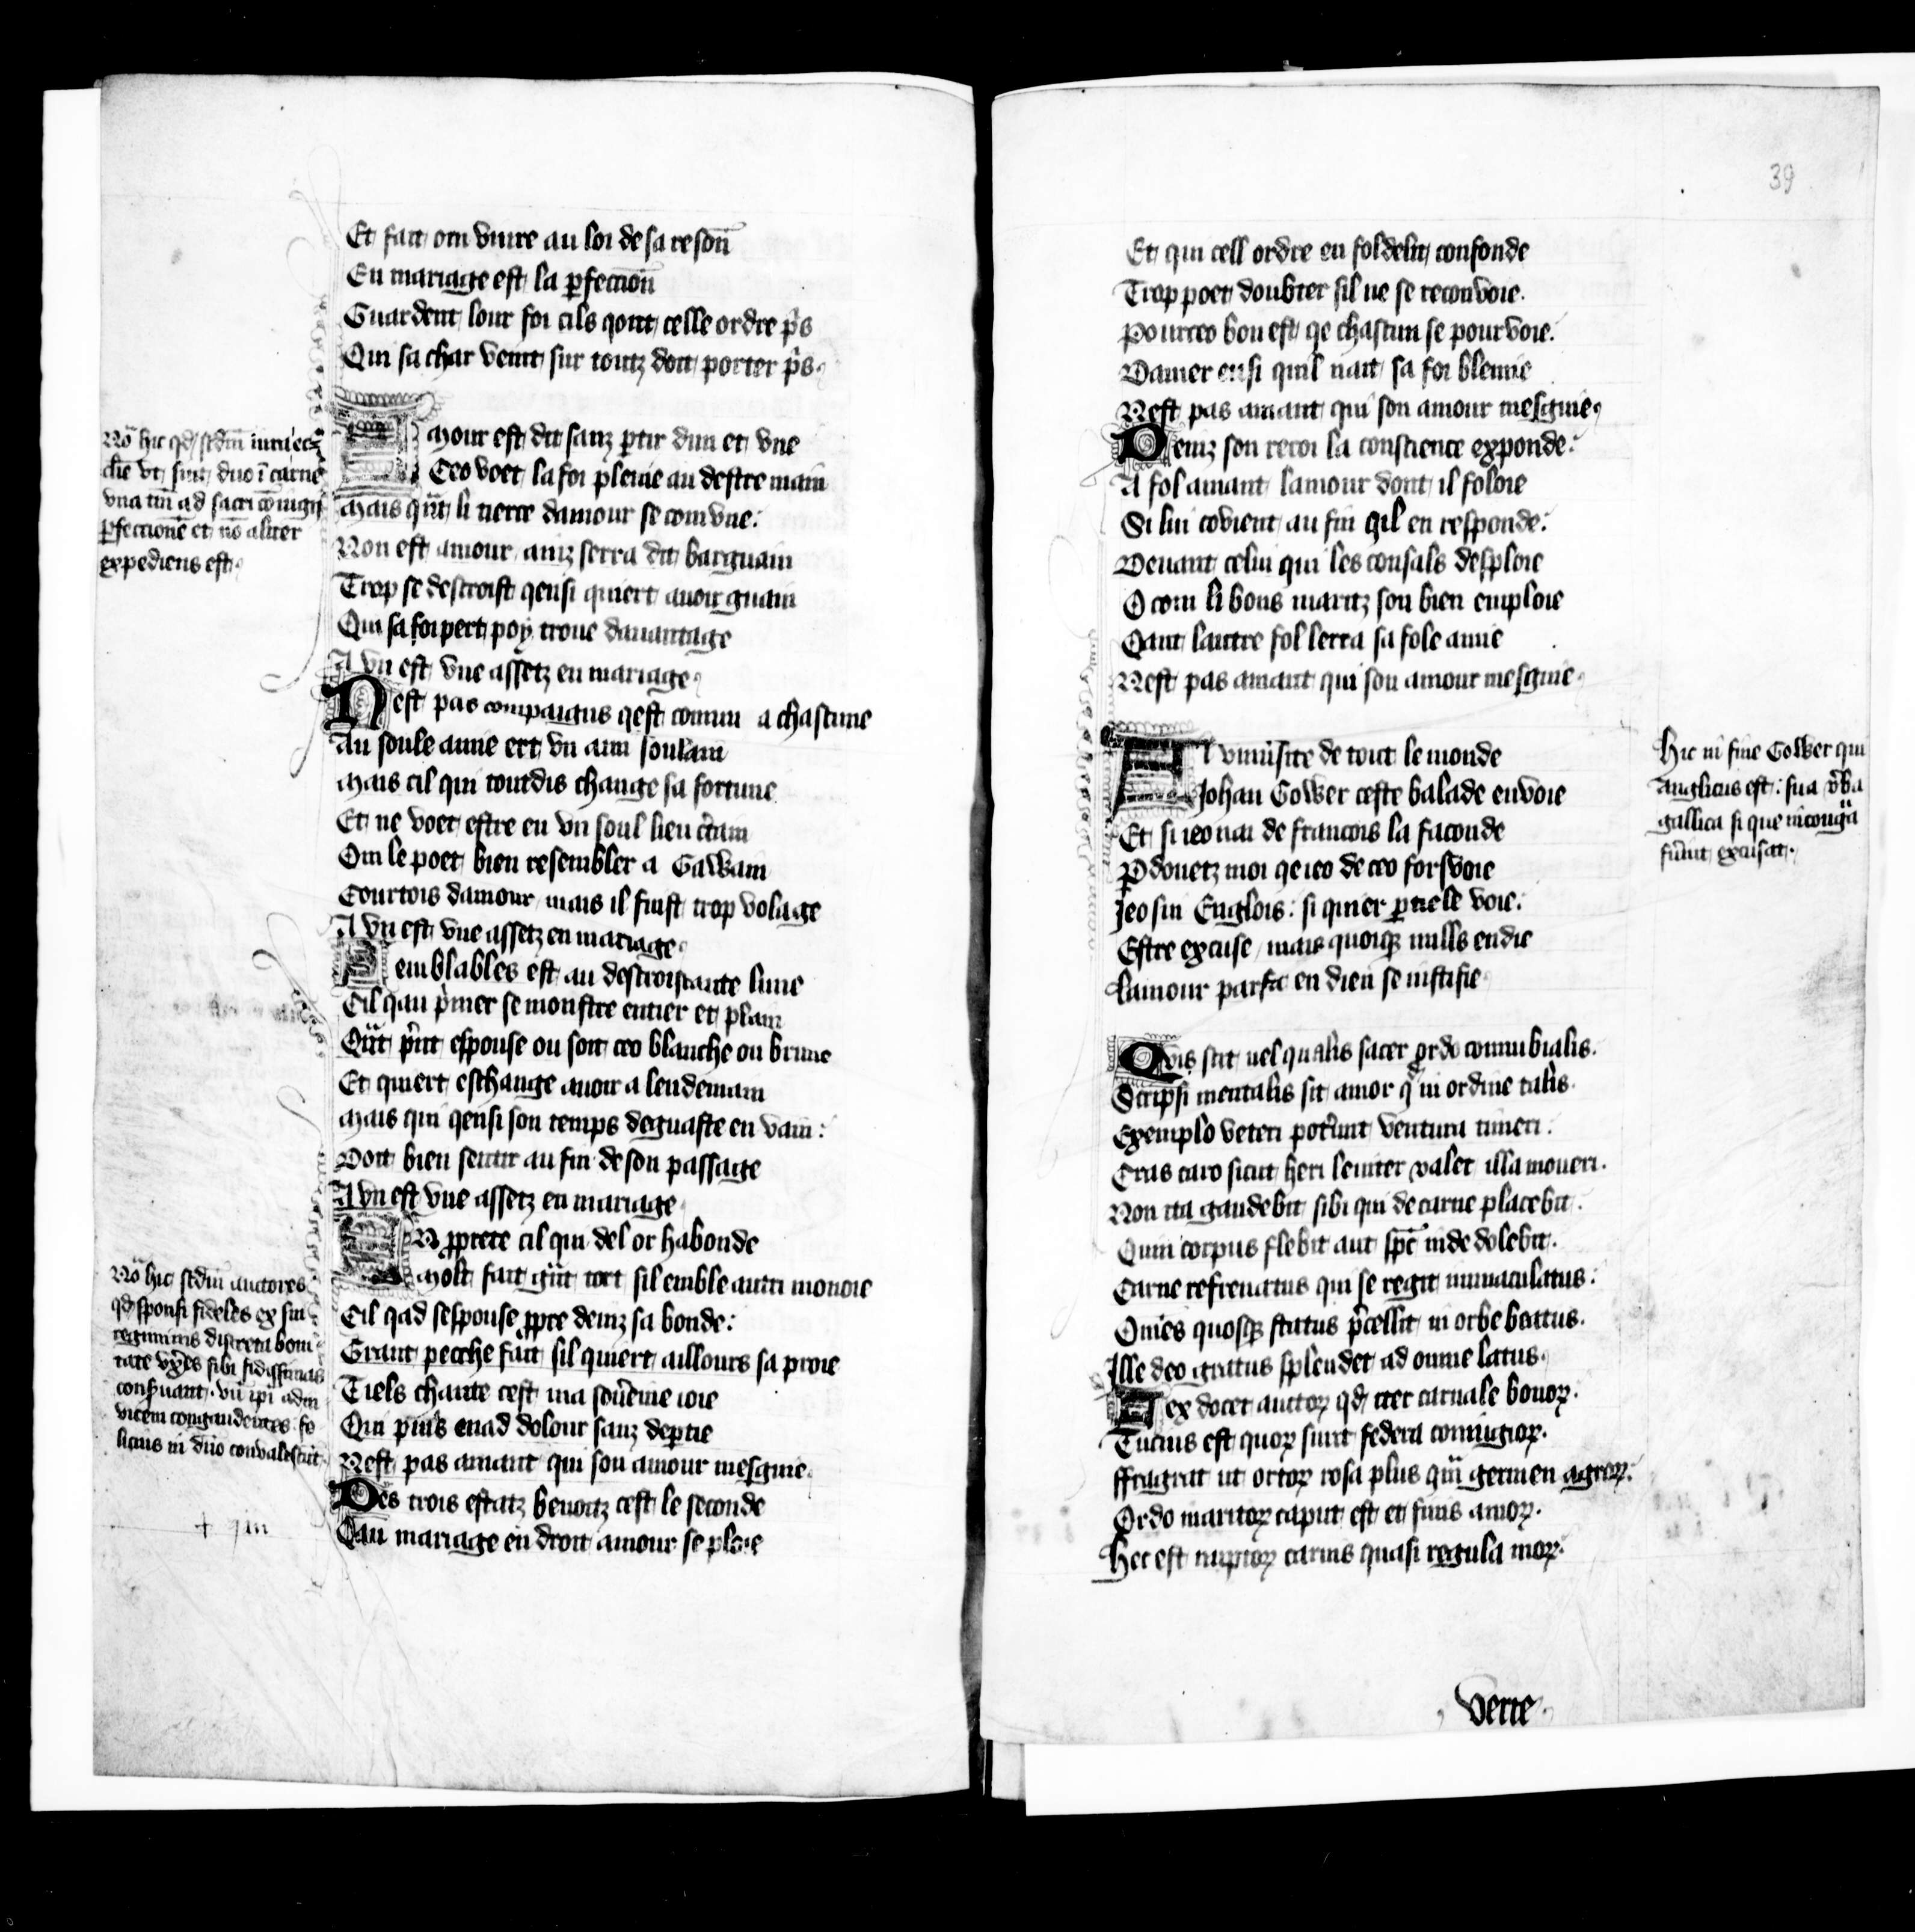 Et fait om viure au loi de sa reson̄
En mariage est la ꝑfeccion̄
Guardent lour foi cils qont celle ordre pͥs
Qui sa char veint sur toutz doit porter pͥs
Amour est dit sanz ꝑtir dun et vne
Ceo voet la foi pleine au destre main
Mais qn̄t li tierce damour se comvne:
Non est amour ainz serra dit barguain
Trop se descroist qensi quiert auoir guain
Qui sa foi pert poy troue dauantage
A vn est vne assetz en mariage
Nest pas compaigns qest comun a chascune
Au soule amie ert vn ami soulain
Mais cil qui toutdis change sa fortune
Et ne voet estre en vn soul lieu ctain
Om le poet bien resembler a Gawain
Courtois damour mais il fuist trop volage
A vn est vne assetz en mariage
Semblables est au descroiscante lune
Cil qau pͥmer se monstre entier et plain
Qn̄t pͥnt espouse ou soit ceo blanche ou brune
Et quiert eschange auoir a lendemain
Mais qui qensi son temps deguaste en vain:
Doit bien sentir au fin de son passage
A vn est vne assetz en mariage
En ꝓprete cil qui del or habonde
Molt fait gn̄t tort sil emble autri monoie
Cil qad sespouse ꝓpre deinz sa bonde:
Grant pecche fait sil quiert aillours sa proie
Tiels chante cest ma soueine ioie
Qui puis enad dolour sanz deꝑtie
Nest pas amant qui son amour mesguie
Des trois estatz benoitz cest le seconde
Qau mariage en droit amour se ploie
Nō hic qd scdm̄ iura ecc̄
die vt sint duo ī carne
vna tm̄ ad sacri coniugii
ꝑfeccionē et nō aliter
expediens est
Nō hic scdm̄ auctores
qd sponsi fideles ex sui
regiminis discreta boni
tate vxores sibi fidissimas
conseruant. vn̄ ipi adin
vicem congaudentes fe
licius in dn̄o conualescūt
+ qui
39
Et qui cell ordre en foldelit confonde
Trop poet doubter sil ne se reconvoie.
Pourceo bon est qe chascun se pourvoie:
Damer ensi quil nait sa foi blemie
Nest pas amant qui son amour mesguie
Deinz son recoi la conscience exponde:
A fol amant lamour dont il foloie
Si lui covient au fin qil en responde:
Deuant celui qui les consals desploie
O com li bons maritz son bien emploie
Qant lautre fol lerra sa fole amie
Nest pas amant qui son amour mesguie
Al vniusite de tout le monde
Johan Gower ceste balade envoie
Et si ieo nai de francois la faconde
Ꝑdonetz moi qe ieo de ceo forsvoie
Jeo sui Englois: si quier ꝑ tiele voie:
Estre excuse mais quoiqꝫ nulls endie
Lamour parfit en dieu se iustifie
Quis sit uel qualis sacer ordo connubialis.
Scripsi mentalis sit amor qͥ in ordine talis.
Exemplo veteri potunt ventura timeri.
Cras caro sicut heri leuiter valet illa moueri.
Non ita gaudebit sibi qui de carne placebit.
Quin corpus flebit aut spc̄ inde dolebit.
Carne refrenatus qui se regit inmaculatus:
Omīes quosqꝫ status pcellit in orbe beatus.
Ille deo gratus splendet ad omne latus.
Lex docet auctoꝝ qd iter carnale bonoꝝ.
Tucius est quoꝝ sunt federa coniugioꝝ.
ffragrat ut ortoꝝ rosa plus qm̄ germen agroꝝ.
Ordo maritoꝝ caput est et finis amoꝝ.
Hec est nuptoꝝ carnis quasi regula moꝝ
Hic in fine Gower qui
anglicus est: sua vba
gallica si que incongͣa
fuint excusat.
Verte.